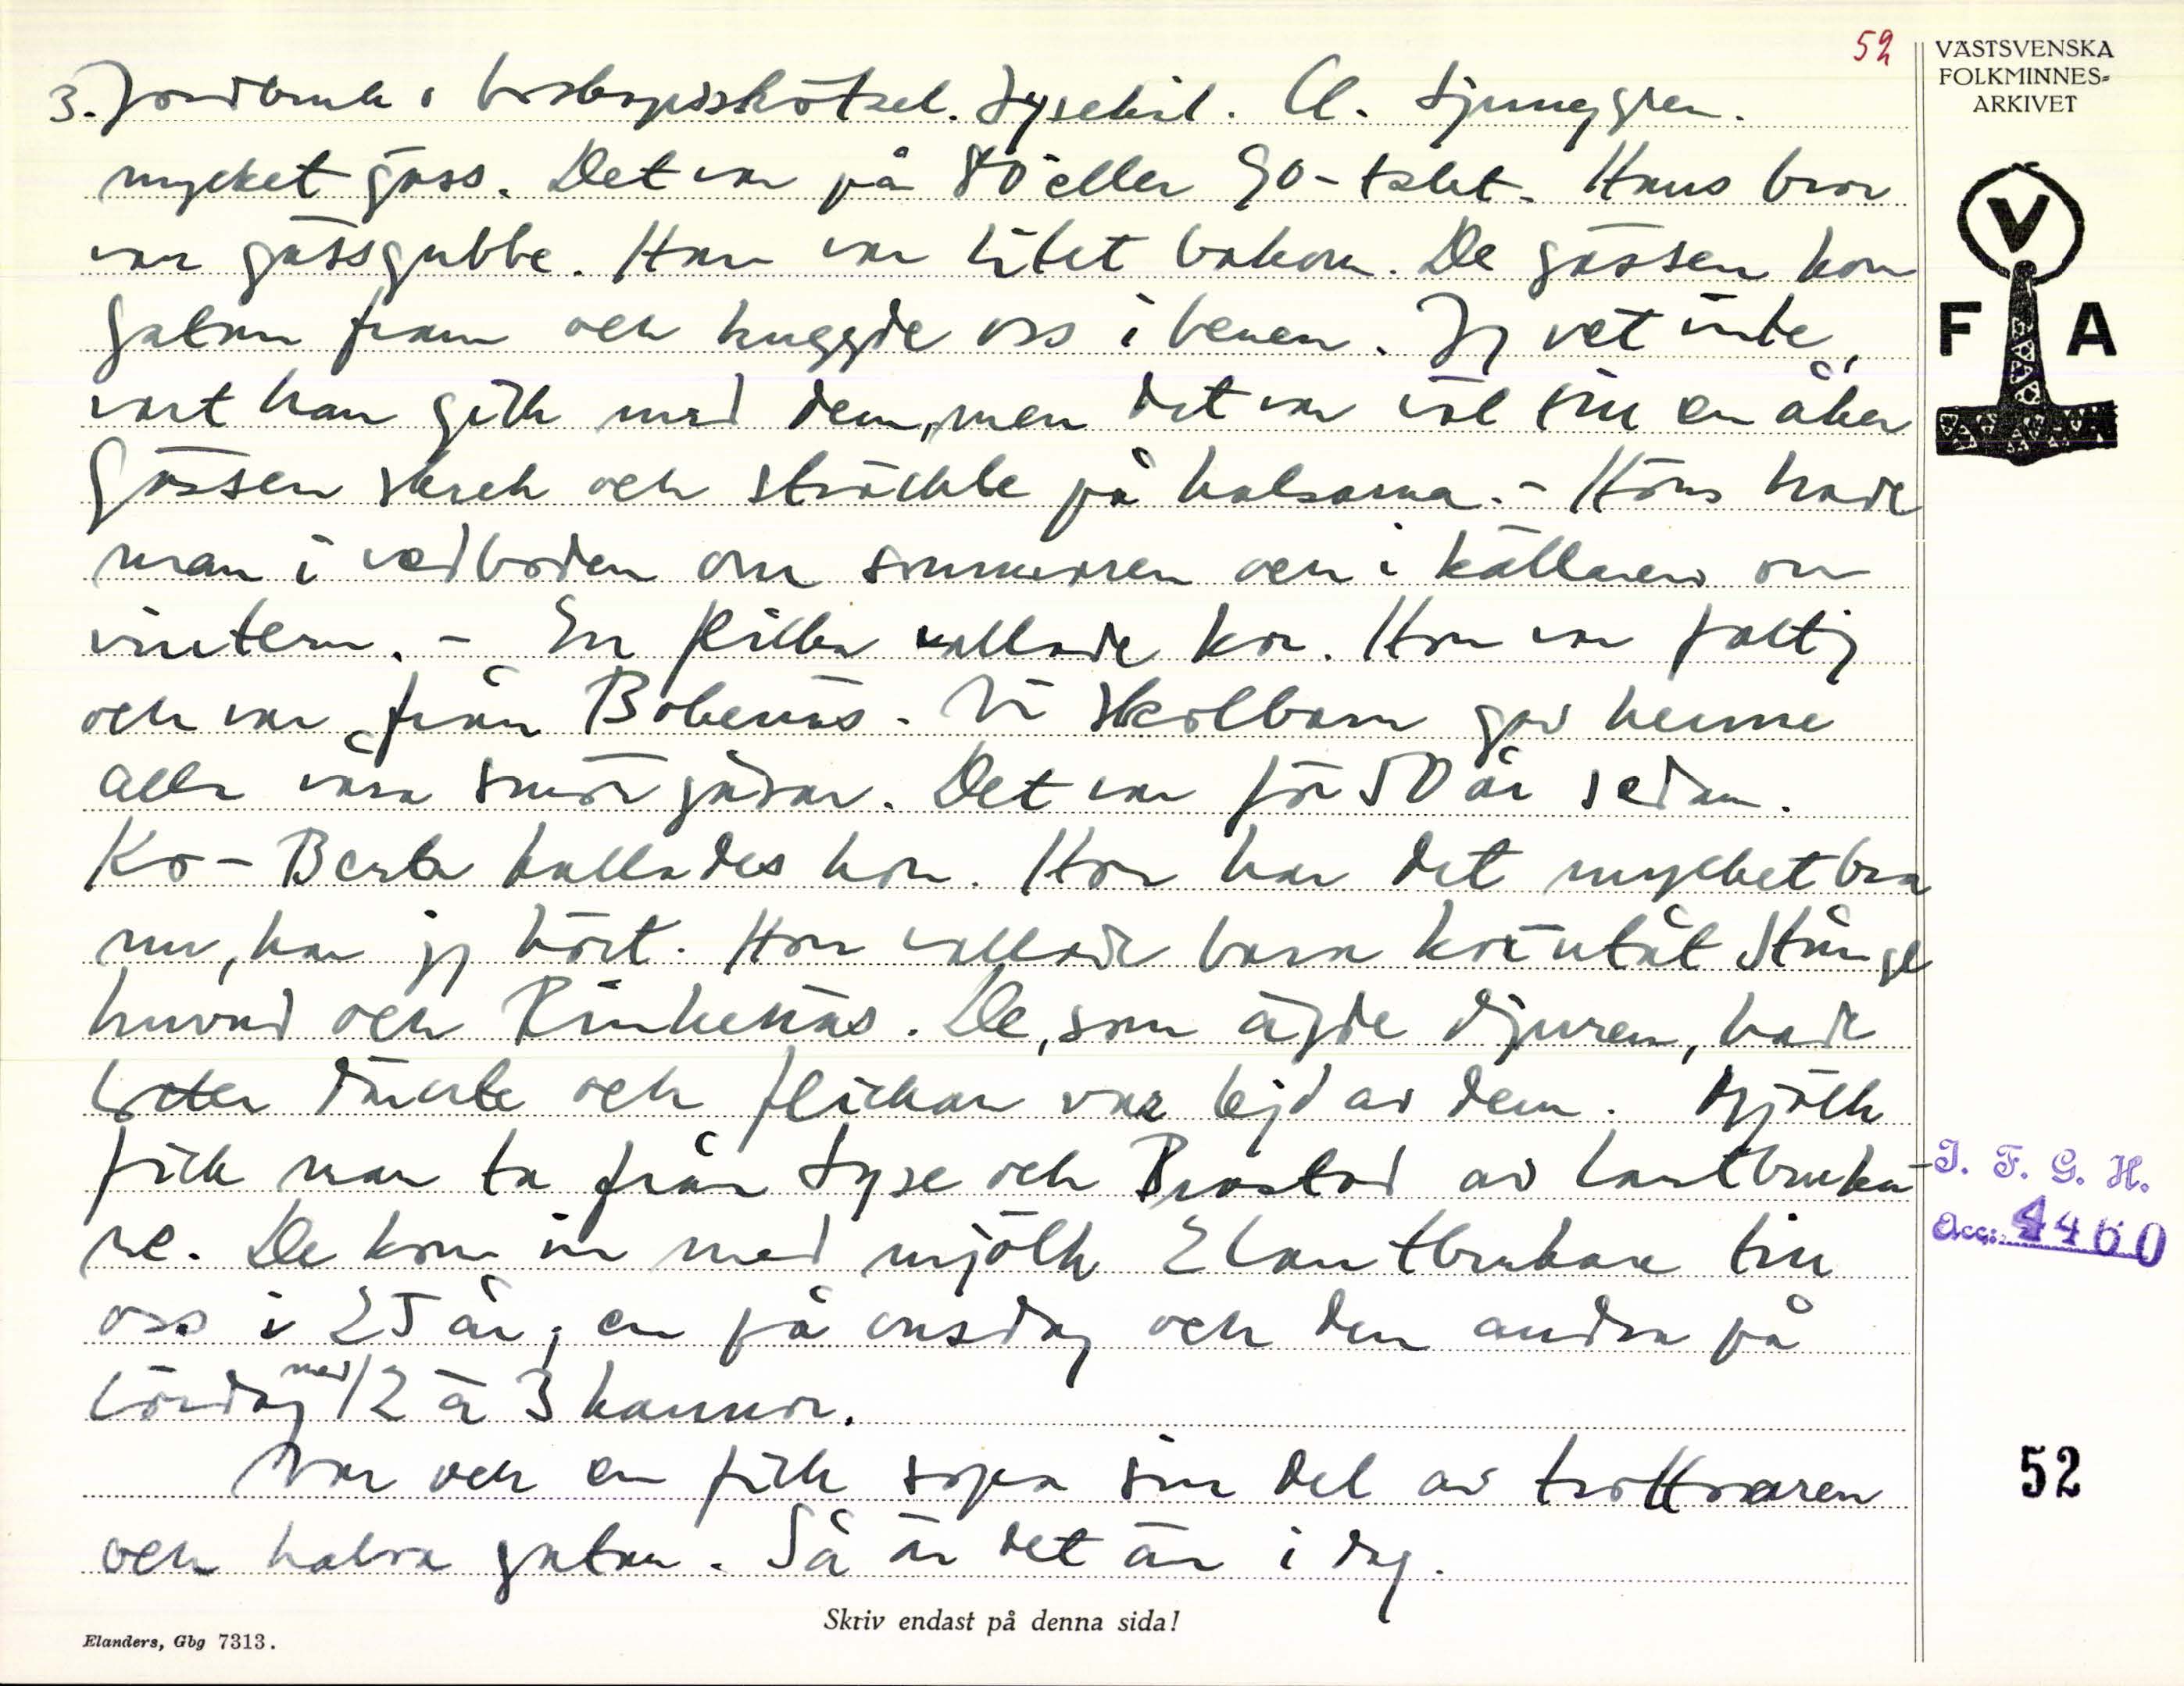 52
VÄSTSVENSKA
FOLKMINNES-
ARKIVET
3. Jordbruk o boskapsskötsel. Lysekil. A. Ljunggren.
mycket gäss. Det var på 80 eller 90-talet. Hans bror
var gåssgubbe. Han var litet bakom. De gässen kom
gatan fram och huggde oss i benen. Jg vet inte,
vart han gick med dem, men det var väl till en åker
Gässen skrek och sträckte på halsarna. - Höns hade
man i vedboden om sommaren och i källaren om
vintern. - En flicka vallade kor. Hon var fattig
och var från Bokenäs. Vi skolbarn gav henne
alla våra smörgåsar. Det var för 50 år sedan.
Ko-Berta kallades hon. Hon har det mycket bra
nu, har jg hört. Hon vallade bara kor utåt Stånge
huvud och Rinkenäs. De, som ägde djuren, hade
beten därute och flickan var lejd av dem. Mjölk
fick man ta från Lyse och Brastad av lantbruka-
re. De kom in med mjölk 2 lantbrukare till
oss i 25 år; en på onsdag och den andra på
lördag med/2 à 3 kannor.
Var och en fick sopa sin del av trottoaren
och halva gatan. Så är det än i dag.
V
F A
I. F. G. H.
Acc: 4460
52
Skriv endast på denna sida!
Elanders, Gbg 7313.